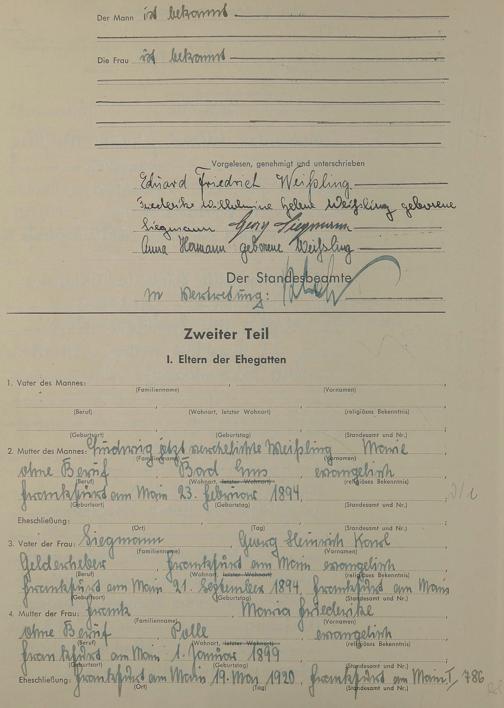 Der Mann ist bekannt
Die Frau ist bekannt
Vorgelesen, genehmigt und unterschrieben
Eduard Friedrich Weißling
Friederike Wilhelmine Helene Weißling geborene
Siegmann Georg Siegmann
Anna Hamann geborene Weißling
Der Standesbeamte
In Vertretung:
Zweiter Teil
I. Eltern der Ehegatten
1. Vater des Mannes:
(Familienname) (Vornamen)
(Beruf) (Wohnort, letzter Wohnort) (religiöses Bekenntnis)
(Geburtsort) (Geburtstag) (Standesamt und Nr.)
2. Mutter des Mannes: Ludwig jetzt verehelichte Weißling Marie
(Familienname) (Vornamen)
ohne Beruf Bad Ems evangelisch
(Beruf) (Wohnort, letzter Wohnort) (religiöses Bekenntnis)
Frankfurt am Main 23. Februar 1894
(Geburtsort) (Geburtstag) (Standesamt und Nr.)
Eheschließung:
(Ort) (Tag) (Standesamt und Nr.)
3. Vater der Frau: Siegmann Georg Heinrich Karl
(Familienname) (Vornamen)
Gelderheber Frankfurt am Main evangelisch
(Beruf) (Wohnort, letzter Wohnort) (religiöses Bekenntnis)
Frankfurt am Main 21. September 1894 Frankfurt am Main
(Geburtsort) (Geburtstag) (Standesamt und Nr.)
4. Mutter der Frau: Frank Maria Friederike
(Familienname) (Vornamen)
ohne Beruf Polle evangelisch
(Beruf) (Wohnort, letzter Wohnort) (religiöses Bekenntnis)
Frankfurt am Main 1. Januar 1899
(Geburtsort) (Geburtstag) (Standesamt und Nr.)
Eheschließung: Frankfurt am Main 19. May 1920 Frankfurt am Main I, 786
(Ort) (Tag) (Standesamt und Nr.)